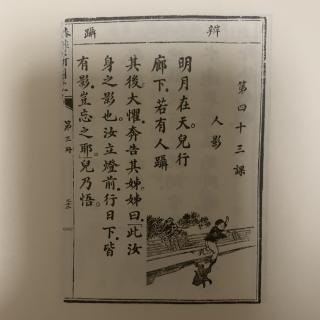 辨
躡
第四十三課
人影
明月在天。兒行
廊下。若有人躡
其後。大懼。奔告其姊。姊曰。此汝
身之影也。汝立燈前。行日下。皆
有影。豈忘之耶。兒乃悟。
第三冊